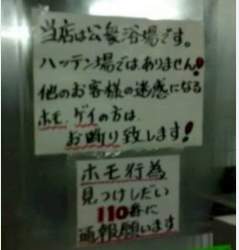 当店は公衆浴場です。
ハッテン場ではありません!
他のお客様の迷惑になる
ホモ、ゲイの方は
お断り致します!
ホモ行為
見つけしだい
110番に
通報願います